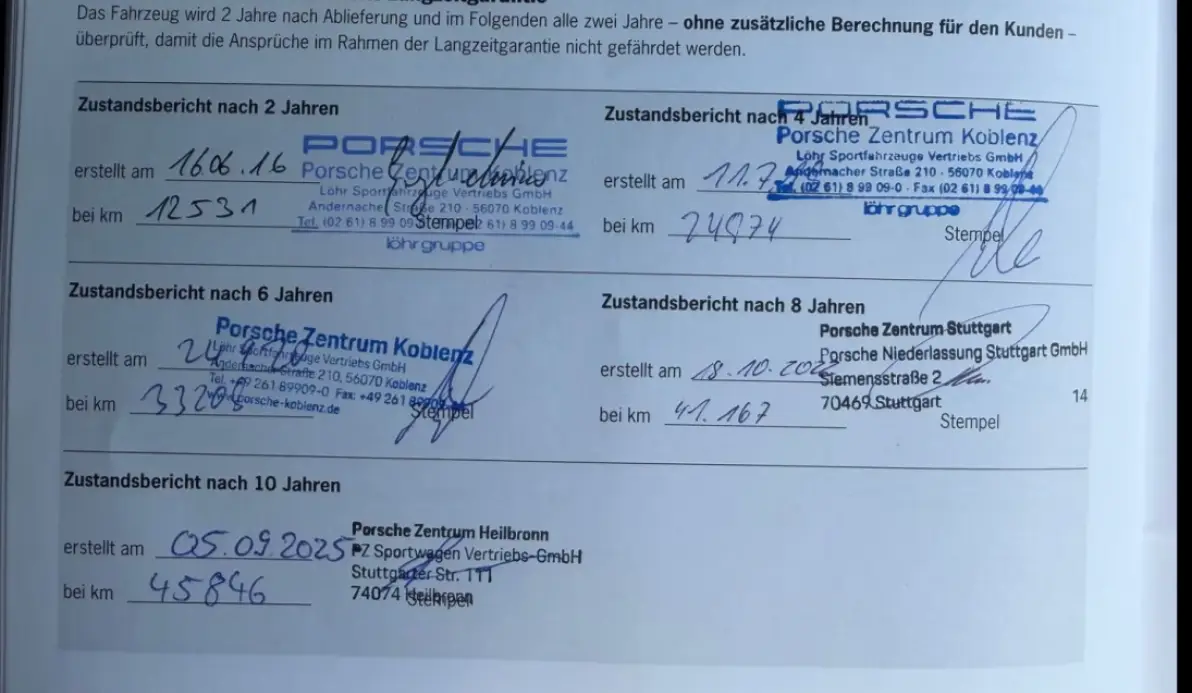 Das Fahrzeug wird 2 Jahre nach Ablieferung und im Folgenden alle zwei Jahre – ohne zusätzliche Berechnung für den Kunden –
überprüft, damit die Ansprüche im Rahmen der Langzeitgarantie nicht gefährdet werden.
Zustandsbericht nach 2 Jahren
erstellt am 16.06.16
bei km 12531
PORSCHE
Porsche Zentrum Koblenz
Löhr Sportfahrzeuge Vertriebs GmbH
Andernacher Straße 210 - 56070 Koblenz
Tel. (02 61) 8 99 09 61) 8 99 09-44
Stempel
löhrgruppe
Zustandsbericht nach 4 Jahren
erstellt am 11.7.
bei km 24974
PORSCHE
Porsche Zentrum Koblenz
Löhr Sportfahrzeuge Vertriebs GmbH
Andernacher Straße 210 - 56070 Koblenz
Tel. (02 61) 8 99 09-0 - Fax (02 61) 8 99 09-44
löhrgruppe
Stempel
Zustandsbericht nach 6 Jahren
erstellt am
bei km 33208
Porsche Zentrum Koblenz
Löhr Sportfahrzeuge Vertriebs GmbH
Andernacher Straße 210, 56070 Koblenz
Tel. +49 261 89909-0 Fax: +49 261
www.porsche-koblenz.de
Stempel
Zustandsbericht nach 8 Jahren
erstellt am 18.10.202
bei km 41.167
Porsche Zentrum Stuttgart
Porsche Niederlassung Stuttgart GmbH
Siemensstraße 2
70469 Stuttgart
Stempel
14
Zustandsbericht nach 10 Jahren
erstellt am 05.09.2025
bei km 45846
Porsche Zentrum Heilbronn
PZ Sportwagen Vertriebs-GmbH
Stuttgarter Str. 111
74074 Heilbronn
Stempel